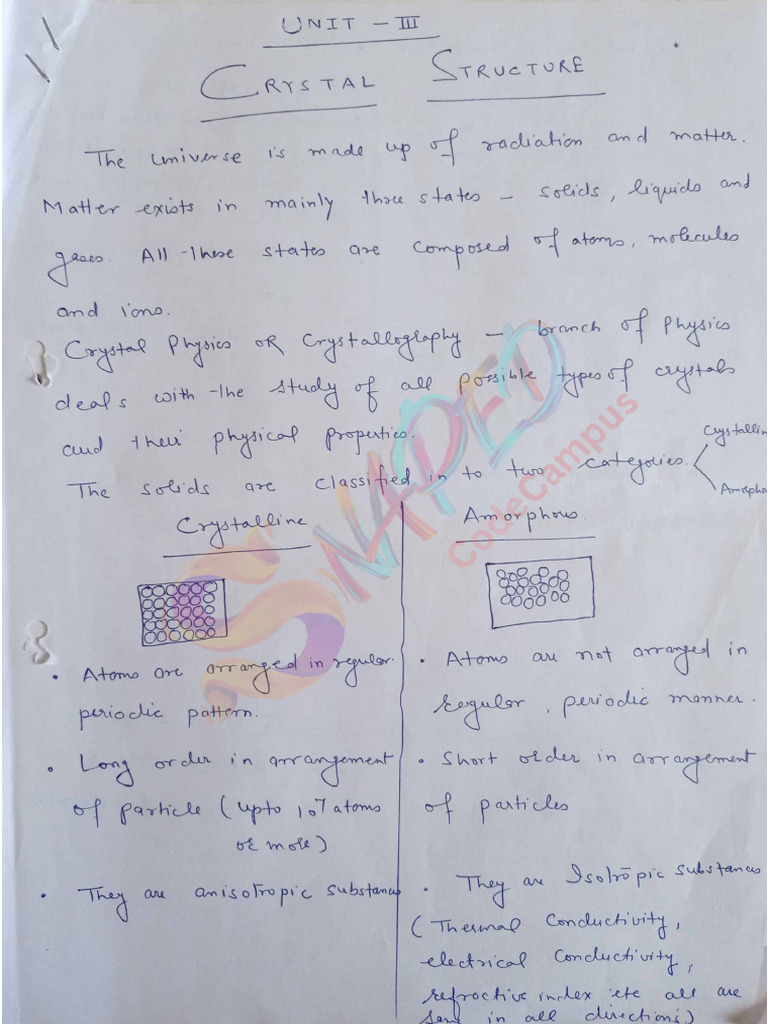 UNIT - III
CRYSTAL STRUCTURE
The universe is made up of radiation and matter.
Matter exists in mainly three states - solids, liquids and
gases. All these states are composed of atoms, molecules
and ions.
Crystal Physics OR Crystallography - branch of Physics
deals with the study of all possible types of crystals
and their physical properties.
The solids are classified in to two categories.
Crystallin
Amorpho
Crystalline
Atoms are arranged in regular
periodic pattern.
Long order in arrangement
of particle (upto 10⁷ atoms
or more)
They are anisotropic substances
Amorphous
Atoms are not arranged in
regular, periodic manner.
Short order in arrangement
of particles
They are Isotropic substances
(Thermal Conductivity,
electrical Conductivity,
refractive index etc all are
same in all directions)
SNAPED
CodeCampus